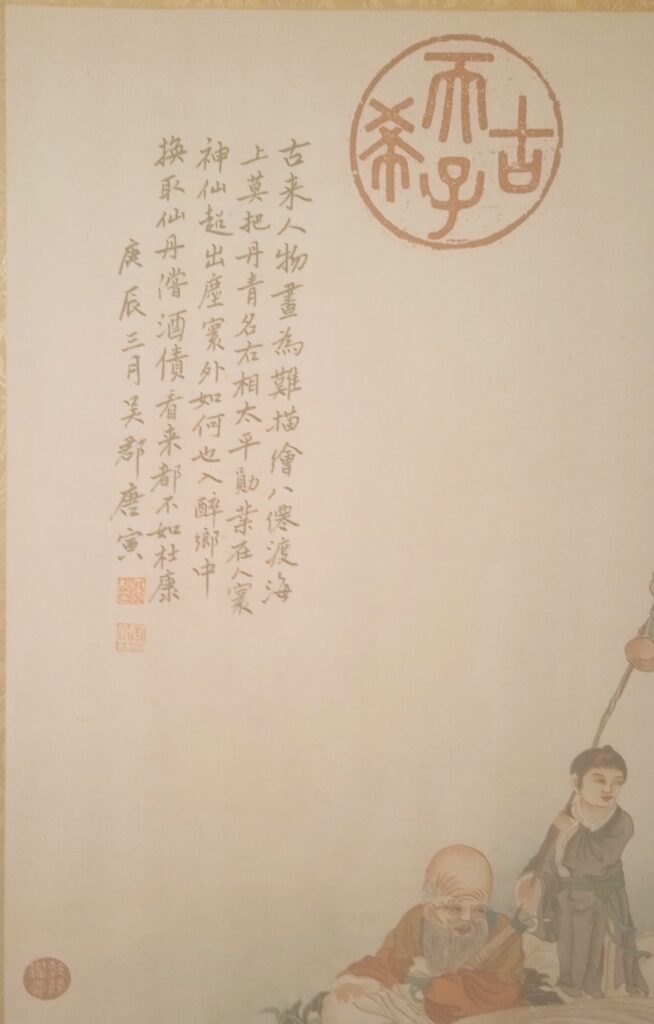 古希天子
古来人物畫為難描繪八僊渡海
上莫把丹青名右相太平勛業在人寰
神仙超出塵寰外如何也入醉鄉中
換取仙丹酒債看来都不如杜康
庚辰三月吳郡唐寅